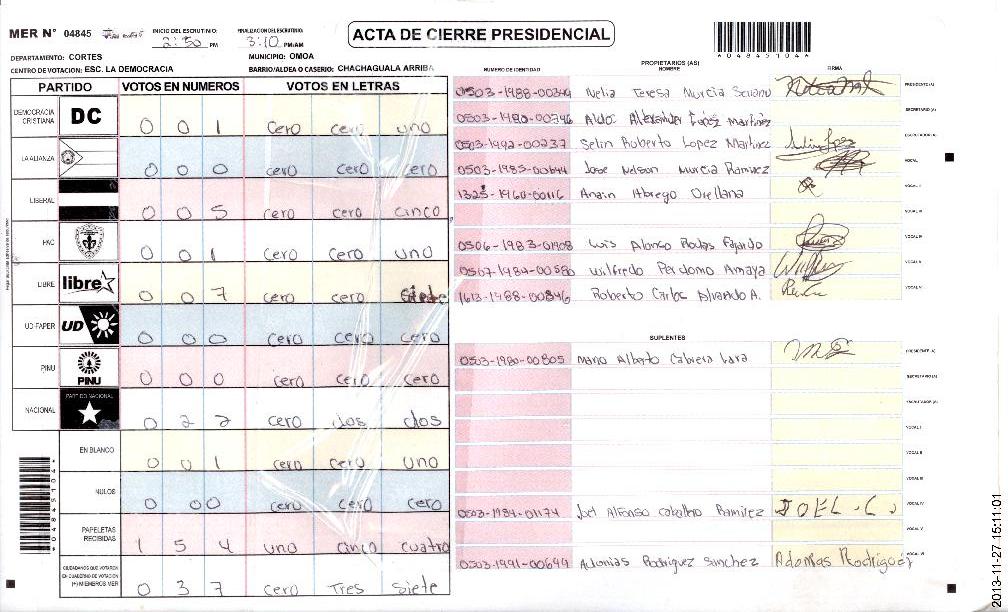 MER N° 04845
INICIO DEL ESCRUTINIO: 2:50 PM
FINALIZACION DEL ESCRUTINIO: 3:10 PM/AM
ACTA DE CIERRE PRESIDENCIAL
*04845104*
DEPARTAMENTO: CORTES MUNICIPIO: OMOA
CENTRO DE VOTACION: ESC. LA DEMOCRACIA BARRIO/ALDEA O CASERIO: CHACHAGUALA ARRIBA
PARTIDO VOTOS EN NUMEROS VOTOS EN LETRAS
DEMOCRACIA CRISTIANA DC 0 0 1 cero cero uno
LA ALIANZA 0 0 0 cero cero cero
LIBERAL 0 0 5 cero cero cinco
PAC 0 0 1 cero cero uno
LIBRE libre 0 0 7 cero cero siete
UD-FAPER UD 0 0 0 cero cero cero
PINU PINU 0 0 0 cero cero cero
NACIONAL PARTIDO NACIONAL 0 2 2 cero dos dos
EN BLANCO 0 0 1 cero cero uno
NULOS 0 0 0 cero cero cero
PAPELETAS RECIBIDAS 1 5 4 uno cinco cuatro
CIUDADANOS QUE VOTARON EN CUADERNO DE VOTACION (+) MIEMBROS MER 0 3 7 cero Tres siete
*04845104*
PROPIETARIOS (AS)
NUMERO DE IDENTIDAD NOMBRE FIRMA
0503-1988-00349 Nelia Teresa Murcia Seviano PRESIDENTE (A)
0503-1980-00746 Aldo Alexander Lopez Martinez SECRETARIO (A)
0503-1992-00237 Selin Roberto Lopez Martinez ESCRUTADOR (A)
0503-1985-00644 Jose Nelson Murcia Ramirez VOCAL I
1325-1960-00116 Anain Abrego Orellana VOCAL II
VOCAL III
0506-1983-01908 Luis Alonso Rodas Fajardo VOCAL IV
0507-1984-00580 Wilfredo Perdomo Amaya VOCAL V
1613-1988-00846 Roberto Carlos Alvarado A. VOCAL VI
SUPLENTES
0503-1980-00805 Mario Alberto Cabrera Lara PRESIDENTE (A)
SECRETARIO (A)
ESCRUTADOR (A)
VOCAL I
VOCAL II
VOCAL III
0503-1984-01174 Joel Alfonso Caballero Ramirez JOEL.C VOCAL IV
VOCAL V
0503-1991-00699 Adonias Rodriguez Sanchez Adonias Rodriguez VOCAL VI
2013-11-27 15:11:01